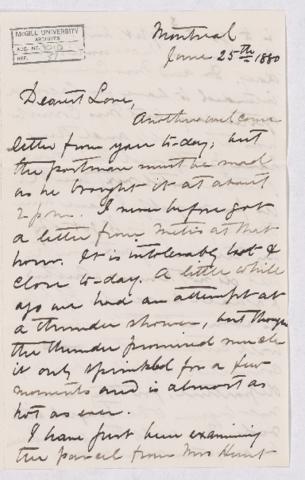 McGILL UNIVERSITY
ARCHIVES
ACC. NO.
REF.
Montreal
June 25th 1880
Dearest Love,
Another welcome
letter from you to-day, but
the postman must be mad
as he brought it at about
2 p.m. I never before got
a letter from Metis at that
hour. It is intolerably hot &
close to-day. A little while
ago we had an attempt at
a thunder shower, but though
the thunder promised much
it only sprinkled for a few
moments and is almost as
hot as ever.
I have just been examining
the parcel from Mrs Hunt